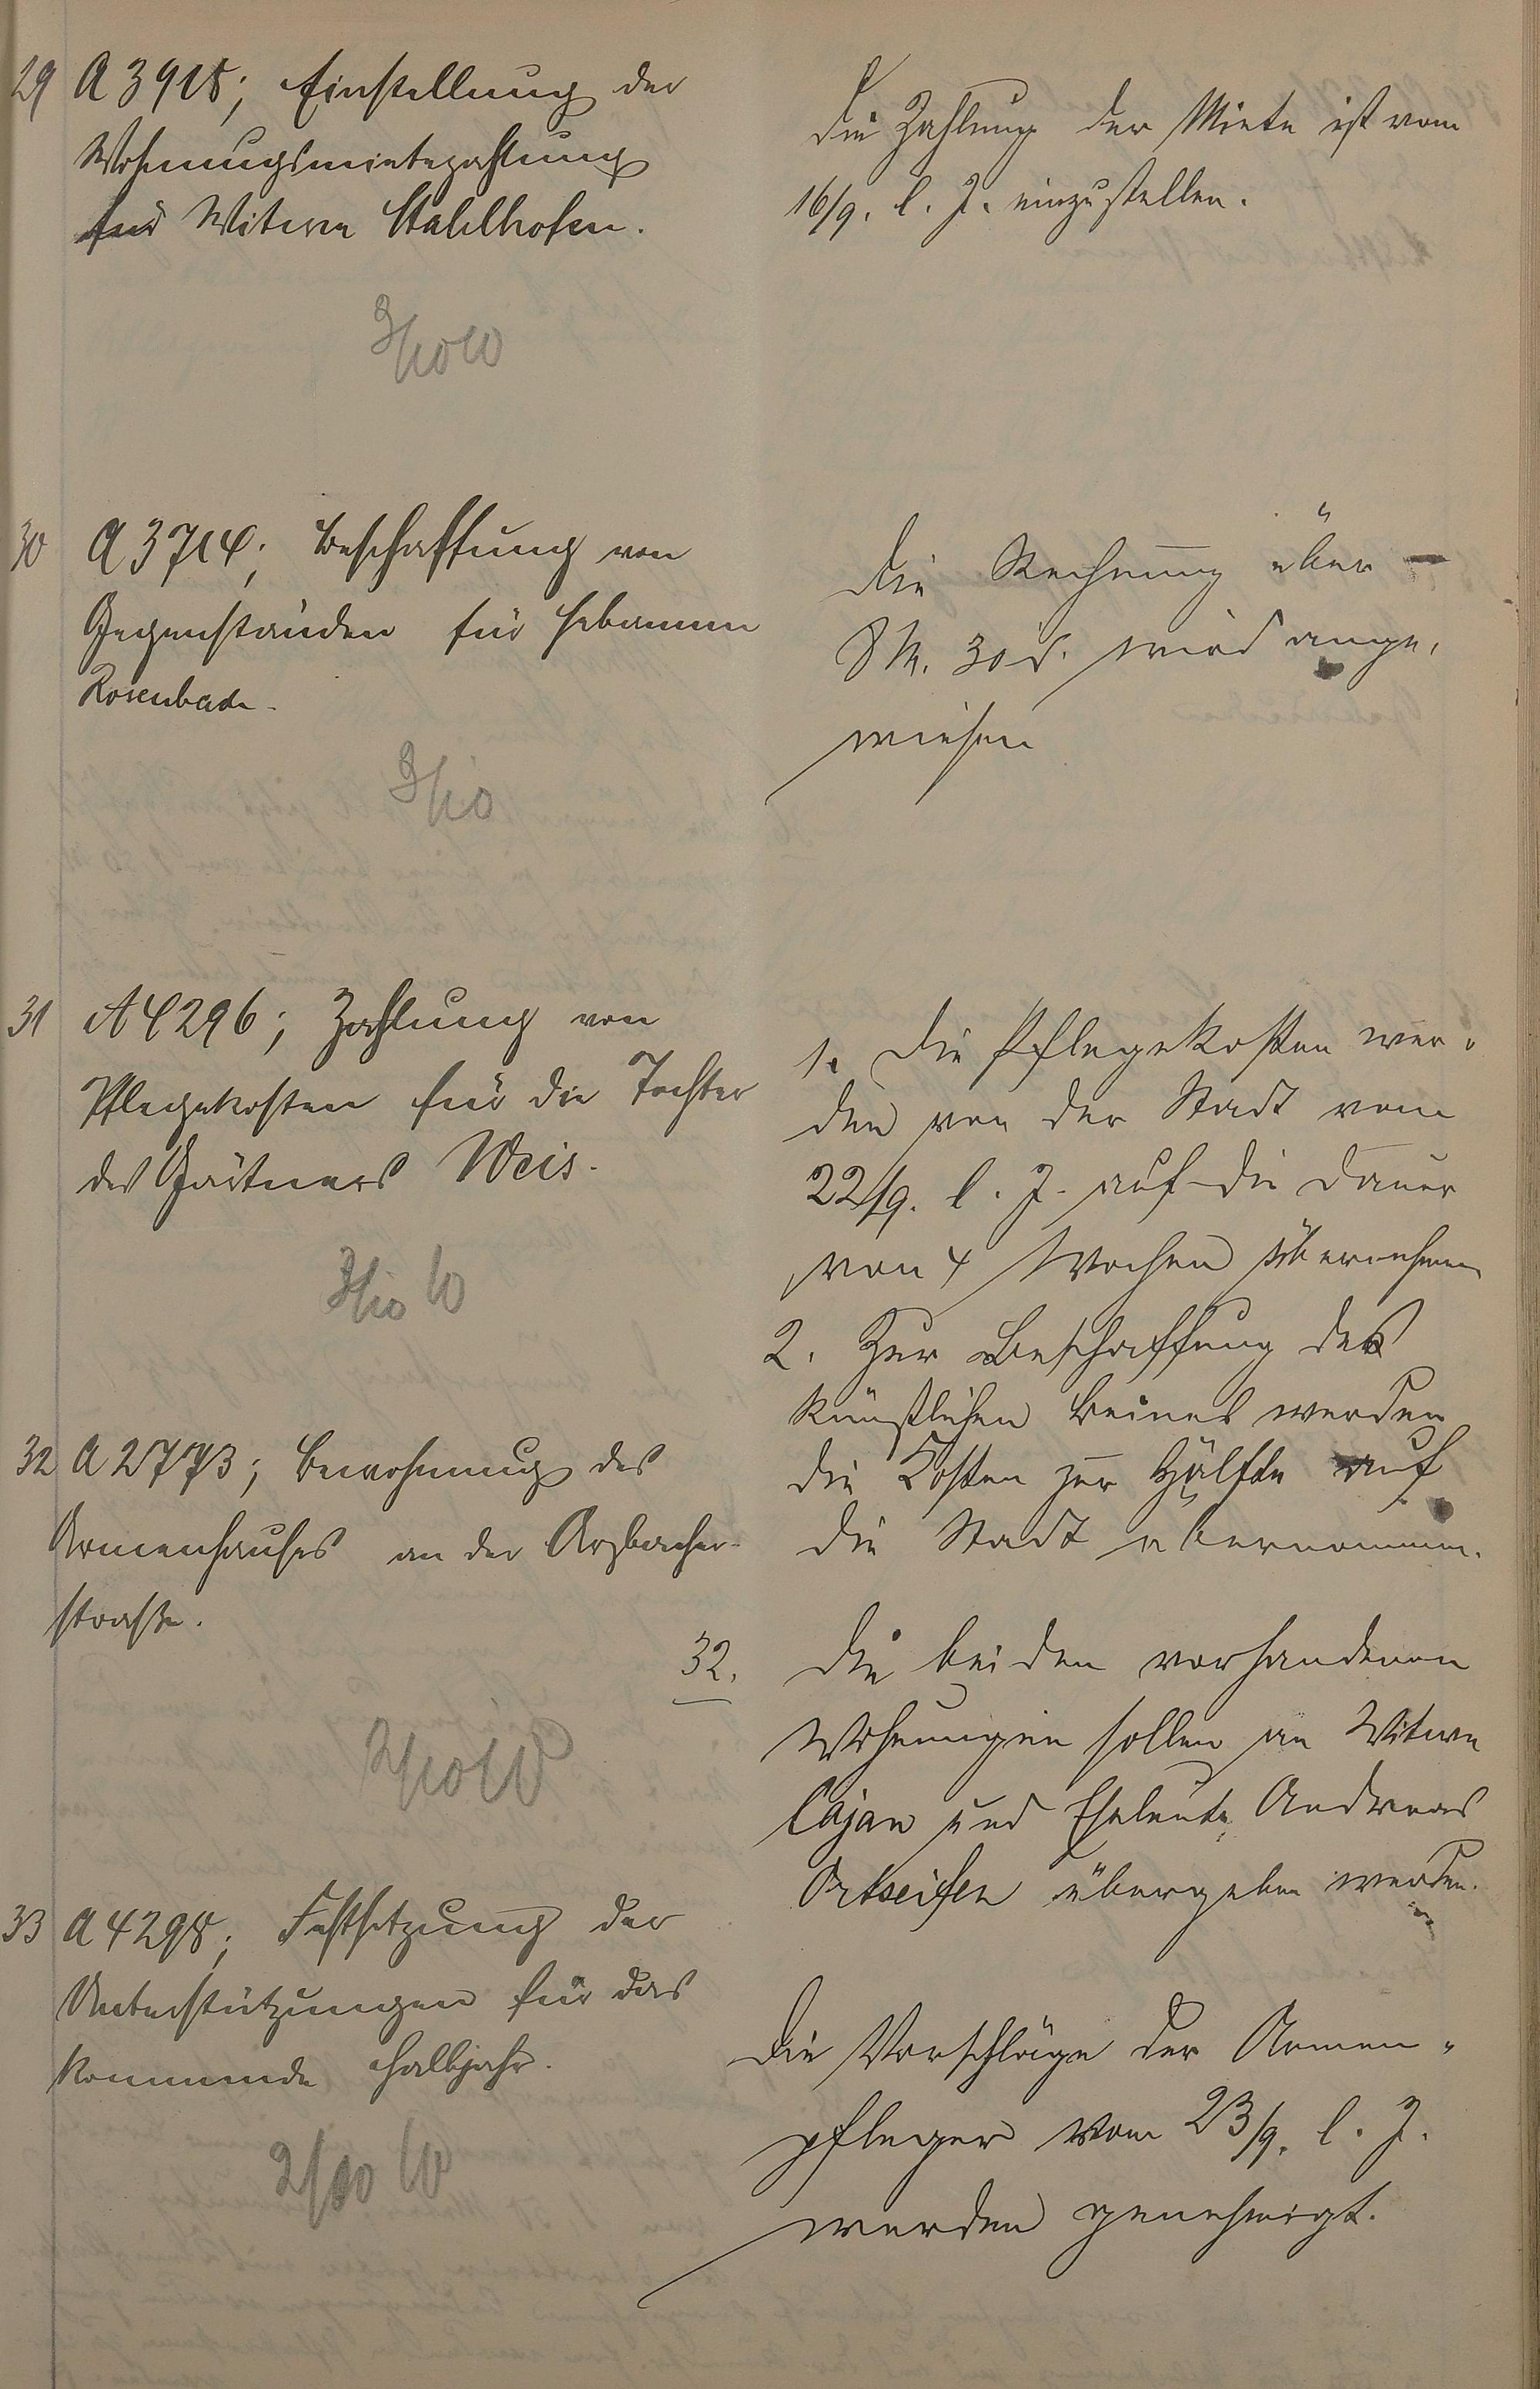 29 A 3918; Einstellung der
Wohnungsmietezahlung
für Witwe Stahlhofen.
3/10 10
Die Zahlung der Miete ist vom
16/9. l. J. einzustellen.
30 A 3714; Beschaffung von
Gegenständen für Hebamme
Rosenbach.
3/10
Die Rechnung über
8 M. 30 d. wird ange-
wiesen
31 A 4296; Zahlung von
Pflegekosten für die Tochter
des Gärtners Weis.
3/10 10
1. Die Pflegekosten wer-
den von der Stadt vom
22/9. l. J. auf die Dauer
von 4 Wochen übernehmen
2. Zur Beschaffung des
künstlichen Beines werden
die Kosten zur Hälfte auf
die Stadt übernommen.
32 A 2773; Bewohnung des
Armenhauses an der Arzbacher-
straße.
2/10 10
32. Die beiden vorhandenen
Wohnungen sollen an Witwe
Cajan und Eheleute Andreas
Ortseifen übergeben werden.
33 A 4298; Festsetzung der
Unterstützungen für das
kommende Halbjahr.
2/10 10
Die Vorschläge der Armen-
pfleger vom 23/9. l. J.
werden genehmigt.